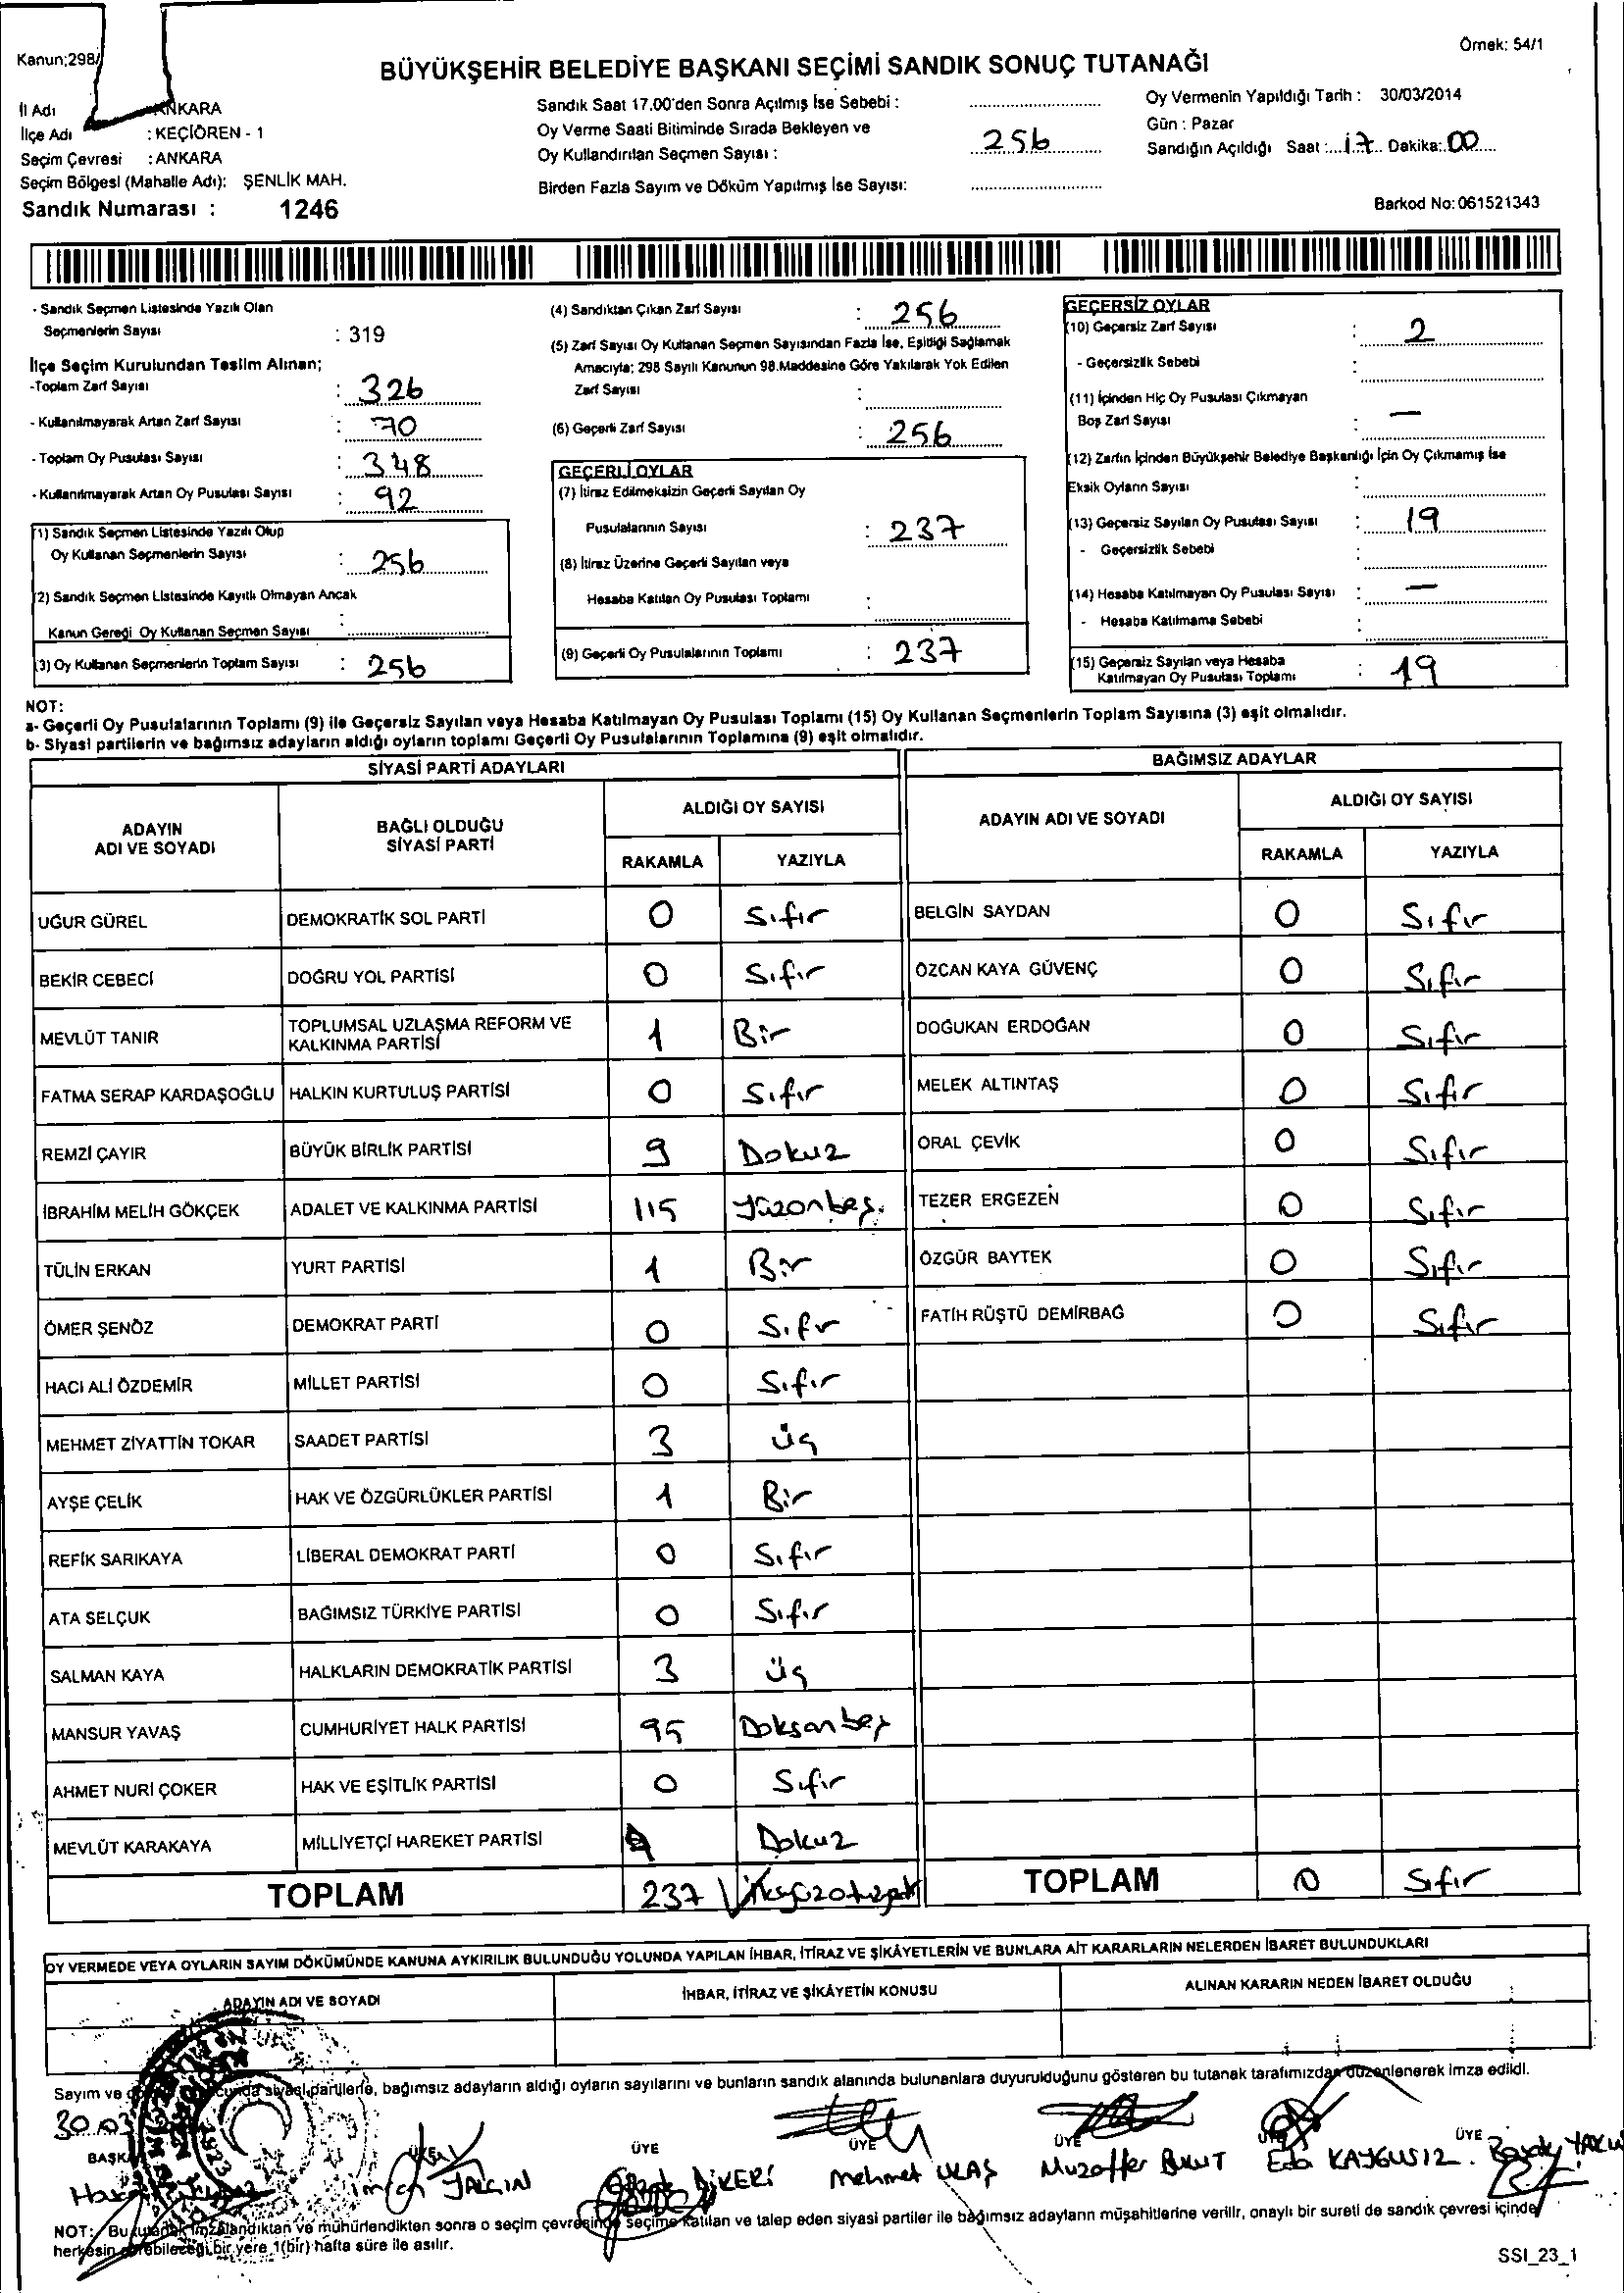 Kanun;298/
Örnek: 54/1
BÜYÜKŞEHİR BELEDİYE BAŞKANI SEÇİMİ SANDIK SONUÇ TUTANAĞI
İl Adı ANKARA
İlçe Adı : KEÇİÖREN - 1
Seçim Çevresi : ANKARA
Seçim Bölgesi (Mahalle Adı): ŞENLİK MAH.
Sandık Numarası : 1246
Sandık Saat 17.00'den Sonra Açılmış İse Sebebi :
Oy Verme Saati Bitiminde Sırada Bekleyen ve
Oy Kullandırılan Seçmen Sayısı : 256
Birden Fazla Sayım ve Döküm Yapılmış İse Sayısı:
Oy Vermenin Yapıldığı Tarih : 30/03/2014
Gün : Pazar
Sandığın Açıldığı Saat : 17 Dakika: 00
Barkod No: 061521343
- Sandık Seçmen Listesinde Yazılı Olan
Seçmenlerin Sayısı : 319
İlçe Seçim Kurulundan Teslim Alınan;
-Toplam Zarf Sayısı : 326
- Kullanılmayarak Artan Zarf Sayısı : 70
- Toplam Oy Pusulası Sayısı : 348
- Kullanılmayarak Artan Oy Pusulası Sayısı : 92
(1) Sandık Seçmen Listesinde Yazılı Olup
Oy Kullanan Seçmenlerin Sayısı : 256
(2) Sandık Seçmen Listesinde Kayıtlı Olmayan Ancak
Kanun Gereği Oy Kullanan Seçmen Sayısı :
(3) Oy Kullanan Seçmenlerin Toplam Sayısı : 256
(4) Sandıktan Çıkan Zarf Sayısı : 256
(5) Zarf Sayısı Oy Kullanan Seçmen Sayısından Fazla İse, Eşitliği Sağlamak
Amacıyla; 298 Sayılı Kanunun 98.Maddesine Göre Yakılarak Yok Edilen
Zarf Sayısı :
(6) Geçerli Zarf Sayısı : 256
GEÇERLİ OYLAR
(7) İtiraz Edilmeksizin Geçerli Sayılan Oy
Pusulalarının Sayısı : 237
(8) İtiraz Üzerine Geçerli Sayılan veya
Hesaba Katılan Oy Pusulası Toplamı :
(9) Geçerli Oy Pusulalarının Toplamı : 237
GEÇERSİZ OYLAR
(10) Geçersiz Zarf Sayısı : 2
- Geçersizlik Sebebi :
(11) İçinden Hiç Oy Pusulası Çıkmayan
Boş Zarf Sayısı : —
(12) Zarfın İçinden Büyükşehir Belediye Başkanlığı İçin Oy Çıkmamış İse
Eksik Oyların Sayısı :
(13) Geçersiz Sayılan Oy Pusulası Sayısı : 19
- Geçersizlik Sebebi :
(14) Hesaba Katılmayan Oy Pusulası Sayısı : —
- Hesaba Katılmama Sebebi :
(15) Geçersiz Sayılan veya Hesaba
Katılmayan Oy Pusulası Toplamı : 19
NOT:
a- Geçerli Oy Pusulalarının Toplamı (9) ile Geçersiz Sayılan veya Hesaba Katılmayan Oy Pusulası Toplamı (15) Oy Kullanan Seçmenlerin Toplam Sayısına (3) eşit olmalıdır.
b- Siyasi partilerin ve bağımsız adayların aldığı oyların toplamı Geçerli Oy Pusulalarının Toplamına (9) eşit olmalıdır.
SİYASİ PARTİ ADAYLARI
ADAYIN ADI VE SOYADI
BAĞLI OLDUĞU SİYASİ PARTİ
ALDIĞI OY SAYISI
RAKAMLA YAZIYLA
UĞUR GÜREL DEMOKRATİK SOL PARTİ 0 Sıfır
BEKİR CEBECİ DOĞRU YOL PARTİSİ 0 Sıfır
MEVLÜT TANIR TOPLUMSAL UZLAŞMA REFORM VE KALKINMA PARTİSİ 1 Bir
FATMA SERAP KARDAŞOĞLU HALKIN KURTULUŞ PARTİSİ 0 Sıfır
REMZİ ÇAYIR BÜYÜK BİRLİK PARTİSİ 9 Dokuz
İBRAHİM MELİH GÖKÇEK ADALET VE KALKINMA PARTİSİ 115 Yüzonbeş
TÜLİN ERKAN YURT PARTİSİ 1 Bir
ÖMER ŞENÖZ DEMOKRAT PARTİ 0 Sıfır
HACI ALİ ÖZDEMİR MİLLET PARTİSİ 0 Sıfır
MEHMET ZİYATTİN TOKAR SAADET PARTİSİ 3 üç
AYŞE ÇELİK HAK VE ÖZGÜRLÜKLER PARTİSİ 1 Bir
REFİK SARIKAYA LİBERAL DEMOKRAT PARTİ 0 Sıfır
ATA SELÇUK BAĞIMSIZ TÜRKİYE PARTİSİ 0 Sıfır
SALMAN KAYA HALKLARIN DEMOKRATİK PARTİSİ 3 üç
MANSUR YAVAŞ CUMHURİYET HALK PARTİSİ 95 Doksanbeş
AHMET NURİ ÇOKER HAK VE EŞİTLİK PARTİSİ 0 Sıfır
MEVLÜT KARAKAYA MİLLİYETÇİ HAREKET PARTİSİ 9 Dokuz
TOPLAM 237
BAĞIMSIZ ADAYLAR
ADAYIN ADI VE SOYADI
ALDIĞI OY SAYISI
RAKAMLA YAZIYLA
BELGİN SAYDAN 0 Sıfır
ÖZCAN KAYA GÜVENÇ 0 Sıfır
DOĞUKAN ERDOĞAN 0 Sıfır
MELEK ALTINTAŞ 0 Sıfır
ORAL ÇEVİK 0 Sıfır
TEZER ERGEZEN 0 Sıfır
ÖZGÜR BAYTEK 0 Sıfır
FATİH RÜŞTÜ DEMİRBAĞ 0 Sıfır
TOPLAM 0 Sıfır
OY VERMEDE VEYA OYLARIN SAYIM DÖKÜMÜNDE KANUNA AYKIRILIK BULUNDUĞU YOLUNDA YAPILAN İHBAR, İTİRAZ VE ŞİKÂYETLERİN VE BUNLARA AİT KARARLARIN NELERDEN İBARET BULUNDUKLARI
ADAYIN ADI VE SOYADI
İHBAR, İTİRAZ VE ŞİKÂYETİN KONUSU
ALINAN KARARIN NEDEN İBARET OLDUĞU
Sayım ve siyasi partilerle, bağımsız adayların aldığı oyların sayılarını ve bunların sandık alanında bulunanlara duyurulduğunu gösteren bu tutanak tarafımızdan düzenlenerek imza edildi.
30.03
BAŞKAN ÜYE ÜYE ÜYE ÜYE ÜYE ÜYE
YALÇIN DİKERİ Mehmet ULAŞ Muzaffer BULUT Eda KAYGUSIZ
NOT: Bu tutanak imzalandıktan ve mühürlendikten sonra o seçim çevresinde seçime katılan ve talep eden siyasi partiler ile bağımsız adayların müşahitlerine verilir, onaylı bir sureti de sandık çevresi içinde
herkesin görebileceği bir yere 1(bir) hafta süre ile asılır.
SSI_23_1